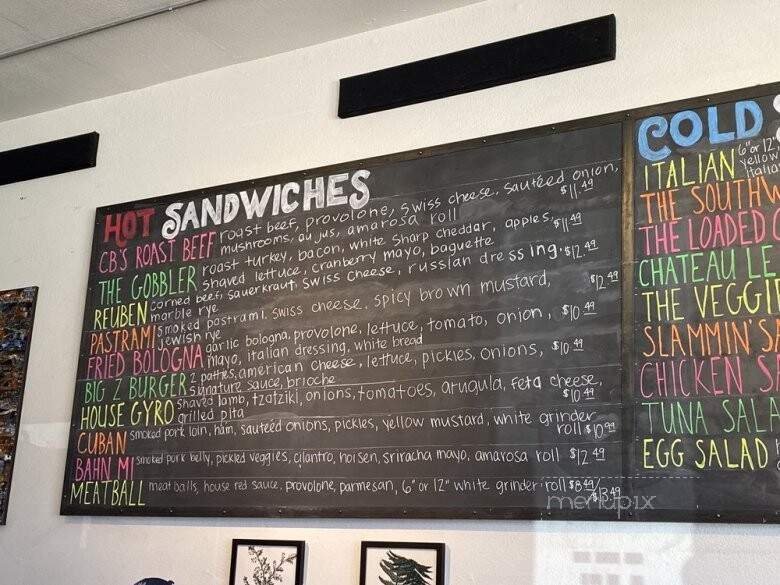 HOT SANDWICHES
CB'S ROAST BEEF roast beef, provolone, swiss cheese, sautéed onion,
mushrooms, au jus, amarosa roll $11.49
THE GOBBLER roast turkey, bacon, white sharp cheddar, apples,
shaved lettuce, cranberry mayo, baguette $11.49
REUBEN corned beef, sauerkraut, swiss cheese, russian dressing,
marble rye $12.49
PASTRAMI smoked pastrami, swiss cheese, spicy brown mustard,
jewish rye $12.49
FRIED BOLOGNA garlic bologna, provolone, lettuce, tomato, onion,
mayo, italian dressing, white bread $10.49
BIG Z BURGER 2 patties, american cheese, lettuce, pickles, onions,
signature sauce, brioche $10.49
HOUSE GYRO shaved lamb, tzatziki, onions, tomatoes, arugula, feta cheese,
grilled pita $10.49
CUBAN smoked pork loin, ham, sautéed onions, pickles, yellow mustard, white grinder
roll $10.99
BAHN MI smoked pork belly, pickled veggies, cilantro, hoisen, sriracha mayo, amarosa roll $12.49
MEATBALL meatballs, house red sauce, provolone, parmesan, 6" or 12" white grinder roll $8.49/$13.49
COLD
ITALIAN 6" or 12"
yellow
italia
THE SOUTHW
THE LOADED C
CHATEAU LE
THE VEGGIE
SLAMMIN' SA
CHICKEN SA
TUNA SALA
EGG SALAD
menupix